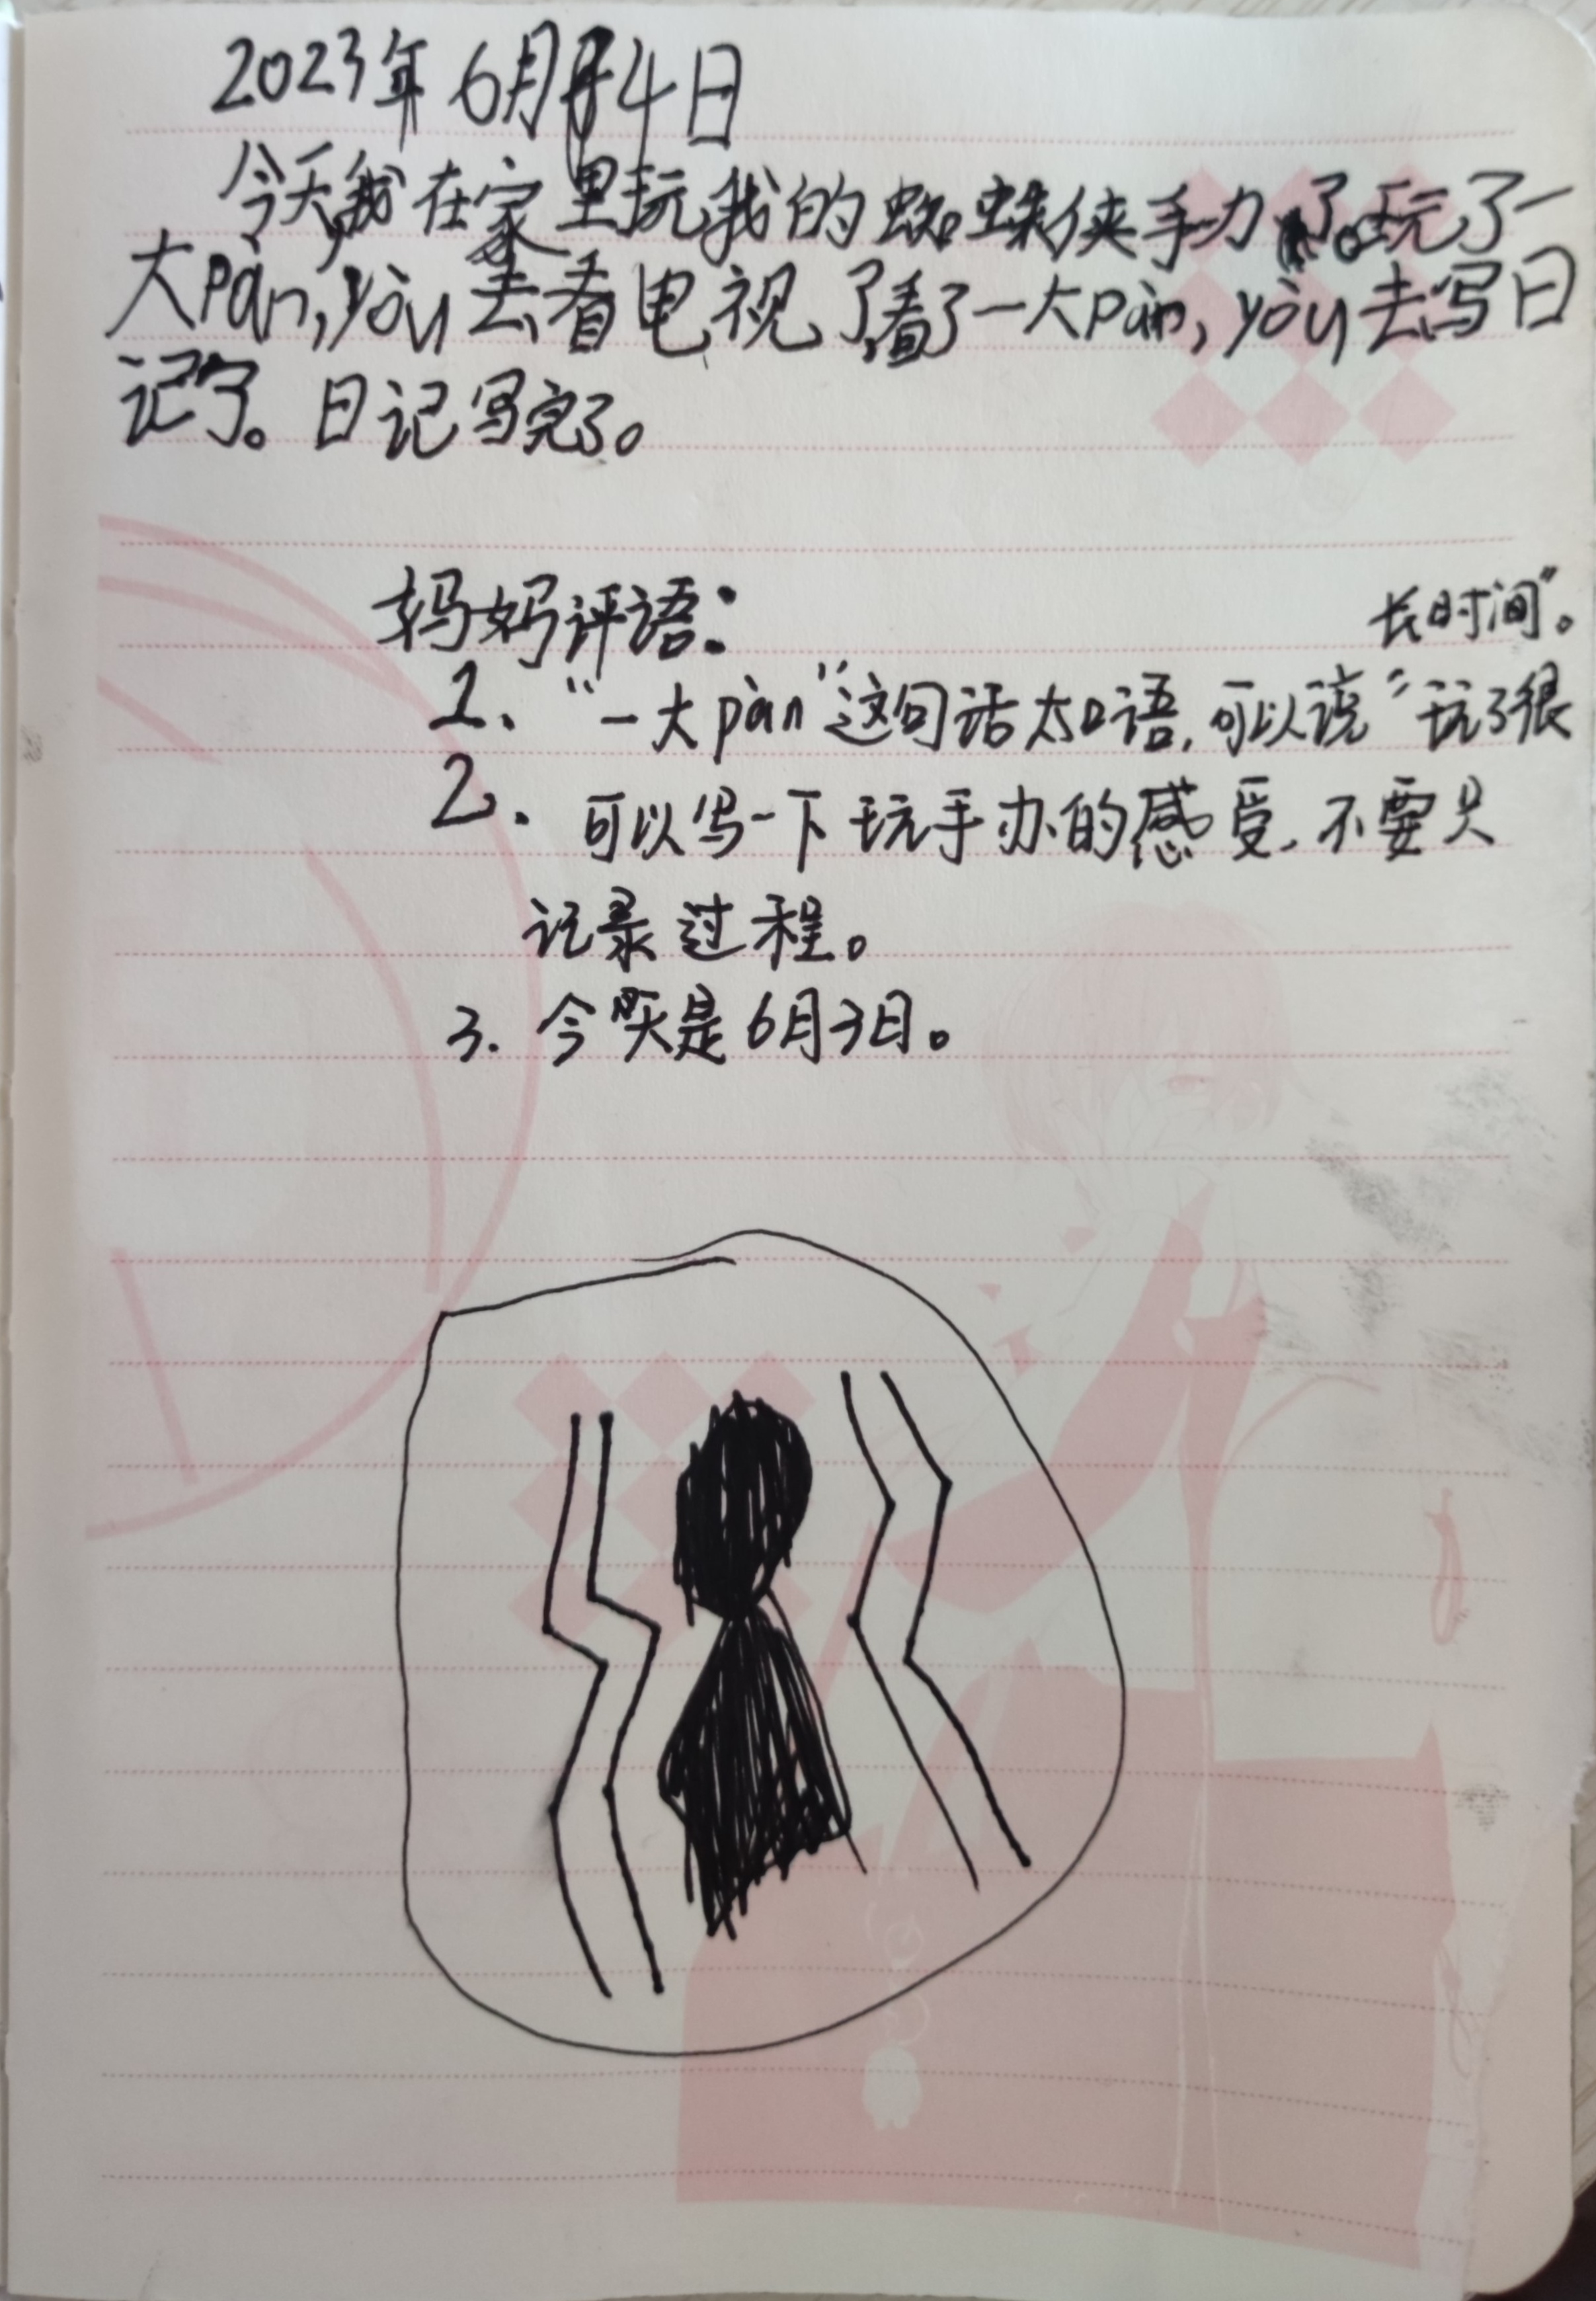 2023年6月4日
今天我在家里玩我的蜘蛛侠手力了。玩了一
大pàn,yòu去看电视了看了一大pàn,yòu去写日
记了。日记写完了。
妈妈评语:
长时间”。
1、“一大pàn”这句话太口语,可以说“玩了很
2、可以写一下玩手办的感受,不要只
记录过程。
3.今天是6月3日。